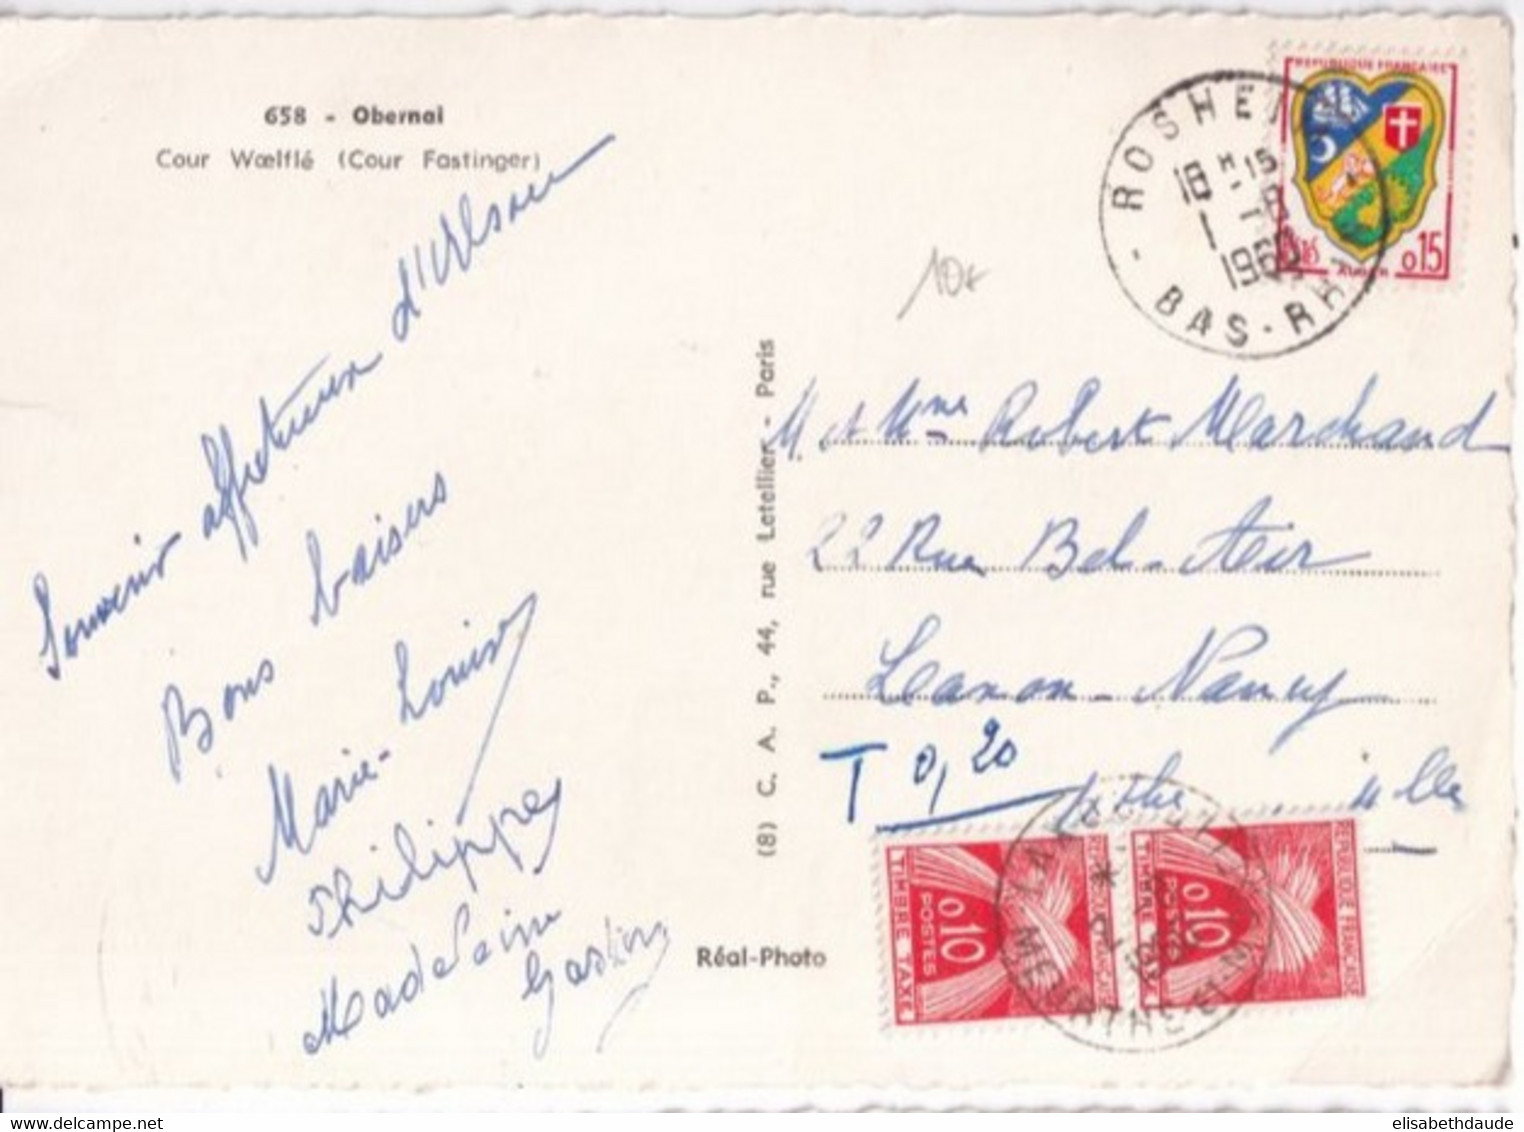 658 - Obernai
Cour Wœlflé (Cour Fastinger)
Souvenir affectueux d'Alsace
Bons baisers
Marie-Louise
Philippe
Madeleine
Gaston
Réal-Photo
(8) C. A. P., 44, rue Letellier - Paris
10€
ROSHEIM
18 H 15
1 - 8
1960
BAS-RHIN
REPUBLIQUE FRANCAISE
POSTES
ALGER 0,15
M. et Mme Robert Marchand
22 Rue Bel-Air
Laxou-Nancy
T 0,20
Mthe et Mlle
TIMBRE TAXE
0,10
POSTES
REPUBLIQUE FRANCAISE
TIMBRE TAXE
0,10
POSTES
REPUBLIQUE FRANÇAISE
MEURTHE-ET-M
elisabethdaude